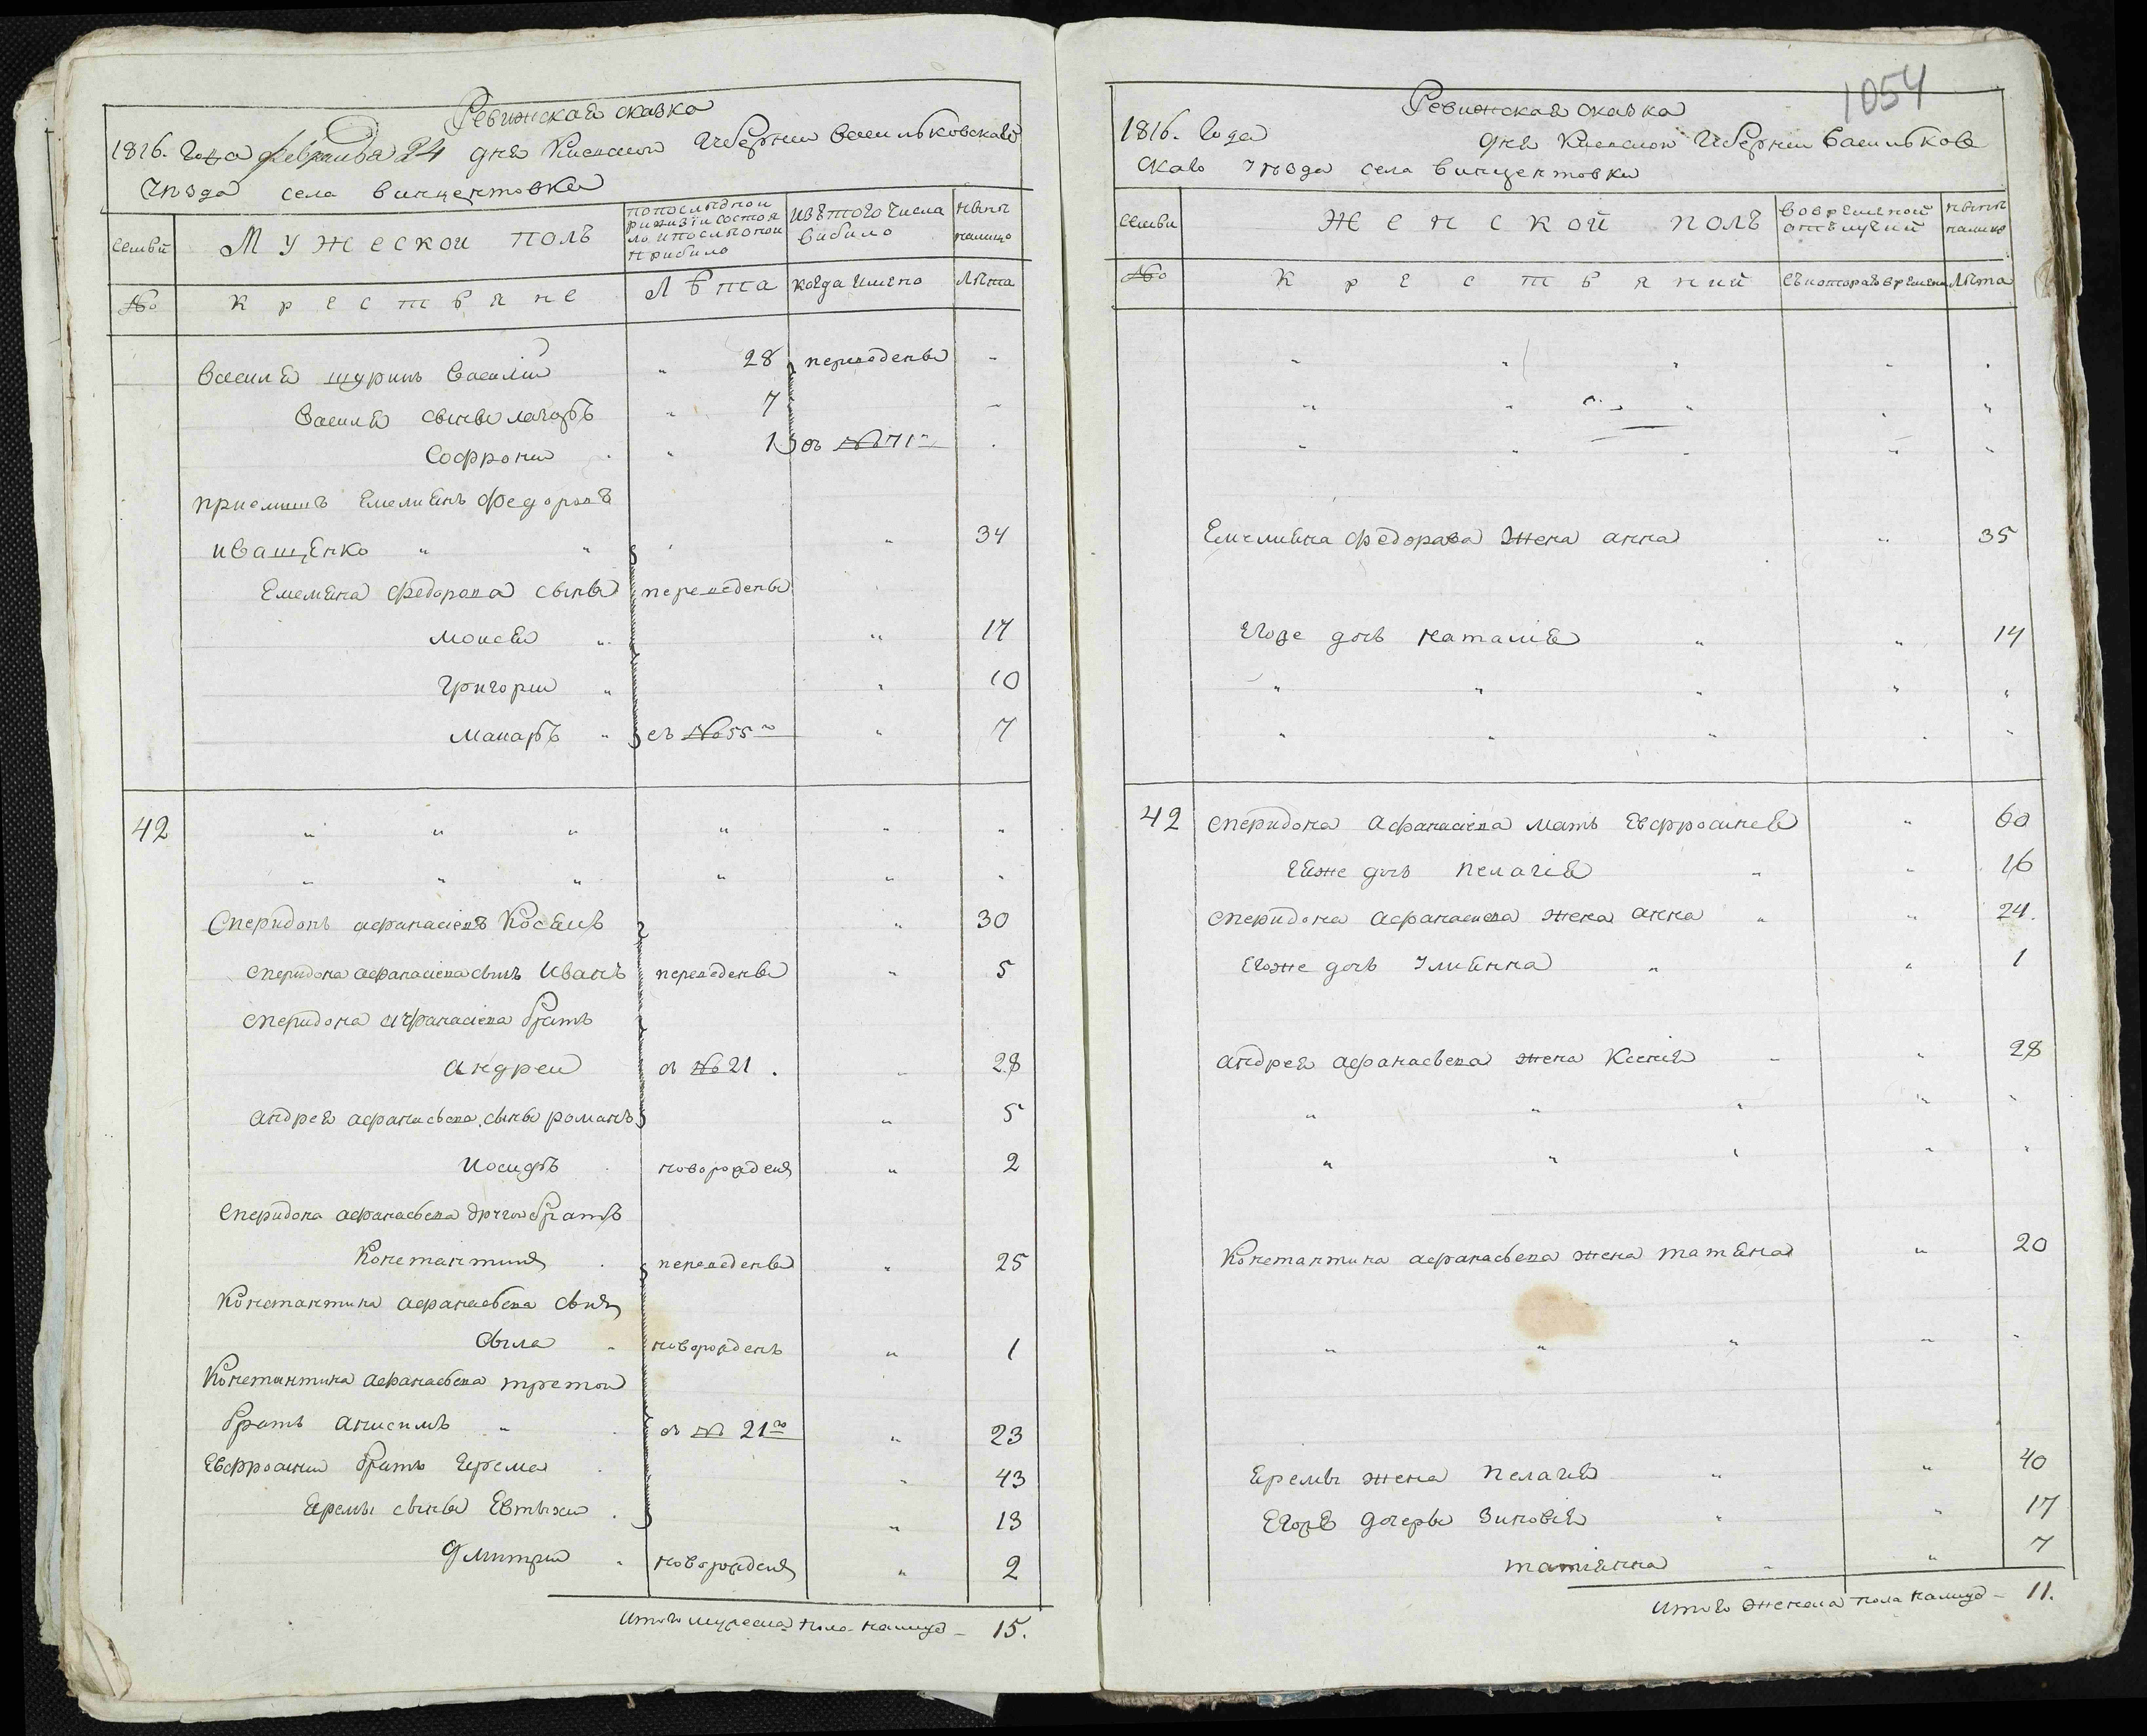 Ревижская сказка
1816. Года февраля 24 дня Киевской Губернии Васильковскаго
Уезда села Винцентовки
семьи
Мужеской полъ
по последнои ревизiи состояло и после оной прибыло
изъ того числа выбыло
ныне налицо
№
крестьяне
Лѣта
когда имено
Лѣта
Василiя шуринъ Василiй " 28 переведены -
Василiя сыны Лазарь " 7 -
Софрони " 1 въ № 71й
приемышъ Емелиянъ Федоровъ
Иващенко " " " 34
Емелияна Федорова сыны переведены
Моисей " " 17
Григорий " " 10
Макаръ " съ № 55го " 7
42 " " " " " "
" " " " " "
Сперидонъ Афанасiевъ Косаль " 30
Сперидона Афанасiева сынъ Иванъ переведены " 5
Сперидона Афанасiева братъ
Андреи съ № 21. " 28
Андрея Афанасьева сыны романъ " 5
Иосифъ новорожденъ " 2
Сперидона Афанасьева другои братъ
Константинъ переведены " 25
Константина Афанасьева сынъ
Сыла новорожденъ " 1
Константина Афанасьева третои
братъ Анисимъ " съ № 21го " 23
Евфросинии братъ Ерема " 43
Еремы сыны Евтыхи " 13
Дмитрий " новорожденъ " 2
Итого мужеска пола налицо - 15.
1054
Ревижская сказка
1816. Года дня Киевской Губернии Васильков
скаго уезда села Винцентовки
семьи
Женской полъ
во временной отлучкий
ныне налицо
№
крестьяний
съ котораго времени
Лѣта
" " " " "
" " " " "
" " " " "
Емелияна Федорова жена анна " 35
Егоже дочь Наталiя " " 14
" " " " "
" " " " "
42 Сперидона Афанасiева мать Евфросинея " 60
Еяже дочь Пелагiя " " 16
Сперидона Афанасиева жена анна " " 24.
Егоже дочь Улиянна " " 1
Андрея Афанасьева жена Ксения " " 28
" " " " "
" " " " "
Константина Афанасьева жена татяна " 20
" " " " "
Еремы жена Пелагия " " 40
Егоже дочеры Зиновiя " " 17
татiянна " " 7
Итого женска пола налицо - 11.